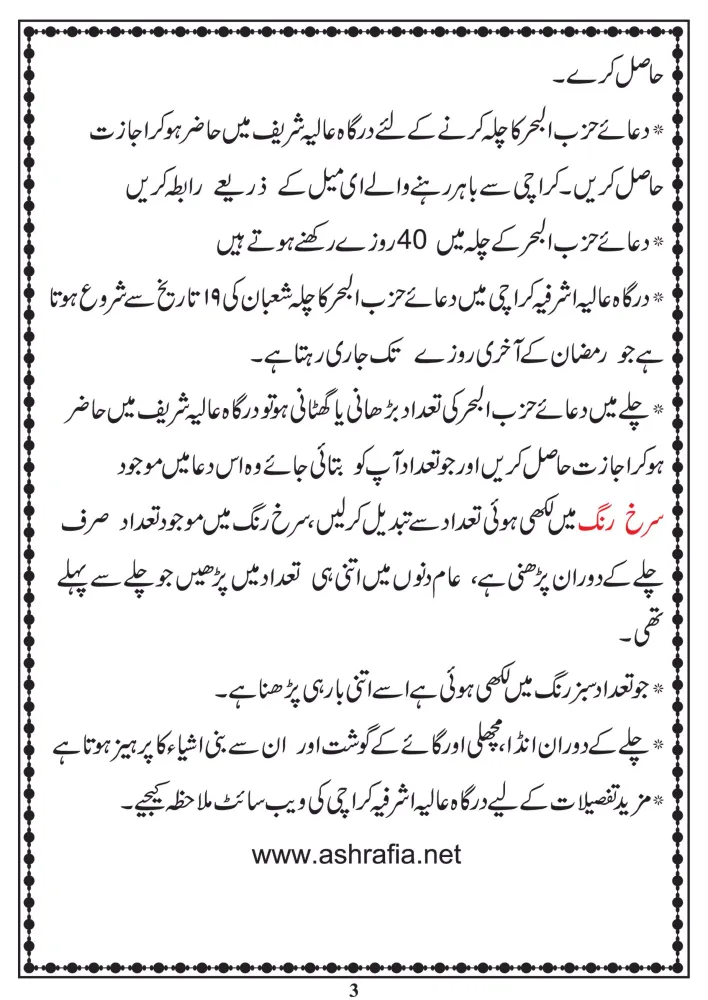 حاصل کرے۔
* دعائے حزب البحر کا چلہ کرنے کے لئے درگاہ عالیہ شریف میں حاضر ہو کر اجازت
حاصل کریں۔ کراچی سے باہر رہنے والے ای میل کے ذریعے رابطہ کریں
* دعائے حزب البحر کے چلہ میں 40 روزے رکھنے ہوتے ہیں
* درگاہ عالیہ اشرفیہ کراچی میں دعائے حزب البحر کا چلہ شعبان کی ۱۹ تاریخ سے شروع ہوتا
ہے جو رمضان کے آخری روزے تک جاری رہتا ہے۔
* چلے میں دعائے حزب البحر کی تعداد بڑھانی یا گھٹانی ہو تو درگاہ عالیہ شریف میں حاضر
ہو کر اجازت حاصل کریں اور جو تعداد آپ کو بتائی جائے وہ اس دعا میں موجود
سرخ رنگ میں لکھی ہوئی تعداد سے تبدیل کرلیں، سرخ رنگ میں موجود تعداد صرف
چلے کے دوران پڑھنی ہے، عام دنوں میں اتنی ہی تعداد میں پڑھیں جو چلے سے پہلے
تھی۔
* جو تعداد سبز رنگ میں لکھی ہوئی ہے اسے اتنی بار ہی پڑھنا ہے۔
* چلے کے دوران انڈا، مچھلی اور گائے کے گوشت اور ان سے بنی اشیاء کا پرہیز ہوتا ہے
* مزید تفصیلات کے لیے درگاہ عالیہ اشرفیہ کراچی کی ویب سائٹ ملاحظہ کیجیے۔
www.ashrafia.net
3